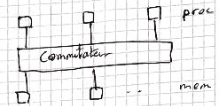 proc
Commutateur
mem